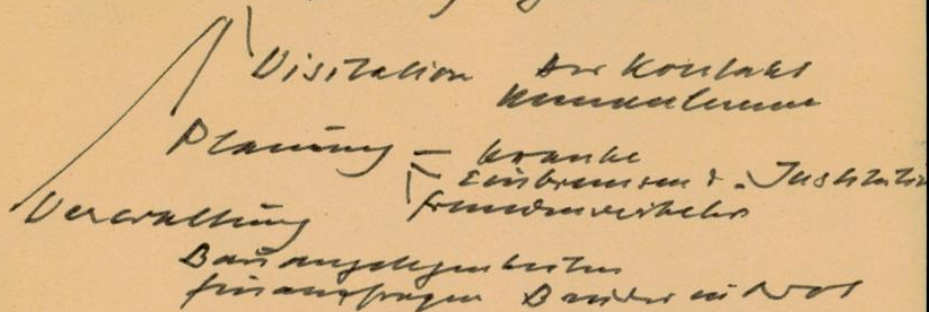 Visitation der Kontakt
Kennenlernen
Planung – Kranke
Einbrennen d. Institution
Fremdenverkehr
Verwaltung
Bauangelegenheiten
Finanzfragen Brüder in Not